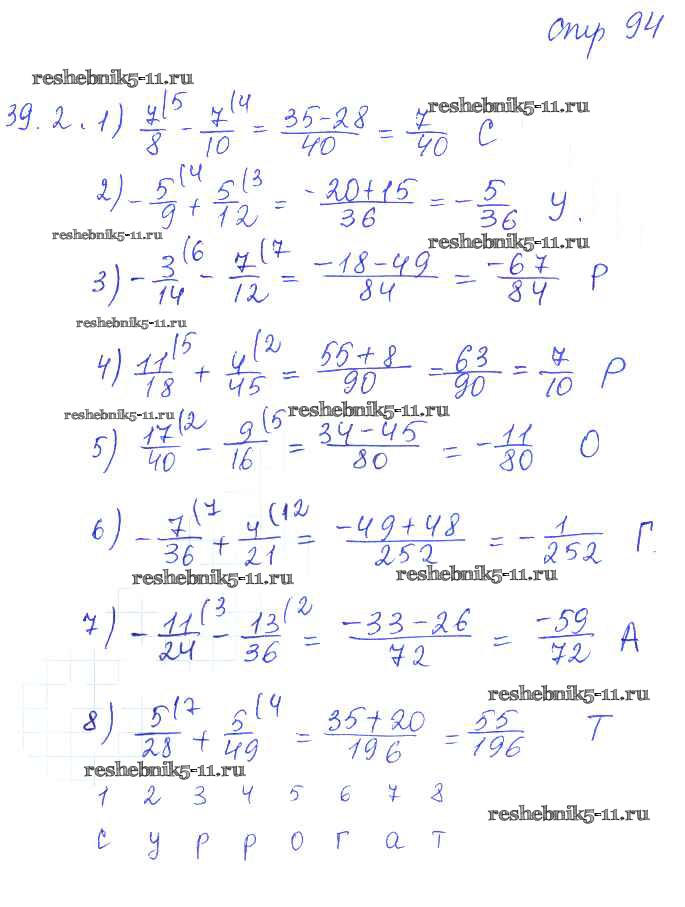 стр 94
reshebnik5-11.ru
reshebnik5-11.ru
39.2. 1) 7/8 (5 - 7/10 (4 = 35-28/40 = 7/40 С
2) -5/9 (4 + 5/12 (3 = -20+15/36 = -5/36 У.
reshebnik5-11.ru
reshebnik5-11.ru
3) -3/14 (6 - 7/12 (7 = -18-49/84 = -67/84 Р
reshebnik5-11.ru
4) 11/18 (5 + 4/45 (2 = 55+8/90 = 63/90 = 7/10 Р
reshebnik5-11.ru
reshebnik5-11.ru
5) 17/40 (2 - 9/16 (5 = 34-45/80 = -11/80 О
6) -7/36 (7 + 4/21 (12 = -49+48/252 = -1/252 Г.
reshebnik5-11.ru
reshebnik5-11.ru
7) -11/24 (3 - 13/36 (2 = -33-26/72 = -59/72 А
reshebnik5-11.ru
8) 5/28 (7 + 5/49 (4 = 35+20/196 = 55/196 Т
reshebnik5-11.ru
1 2 3 4 5 6 7 8
reshebnik5-11.ru
с у р р о г а т